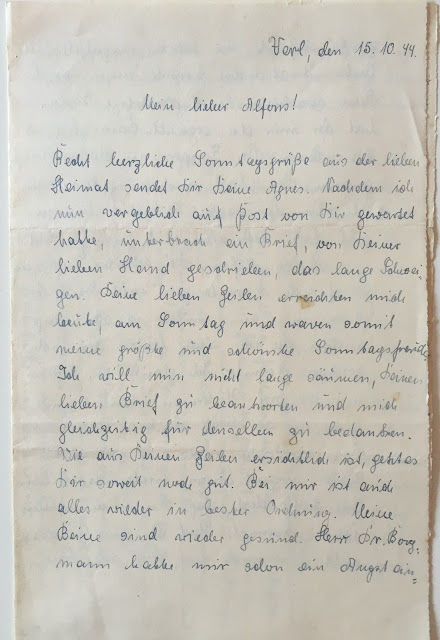 Verl, den 15.10.44.
Mein lieber Alfons!
Recht herzliche Sonntagsgrüße aus der lieben
Heimat sendet Dir Deine Agnes. Nachdem ich
nun vergeblich auf Post von Dir gewartet
hatte, unterbrach ein Brief, von Deiner
lieben Hand geschrieben, das lange Schwei-
gen. Deine lieben Zeilen erreichten mich
heute, am Sonntag und waren somit
meine größte und schönste Sonntagsfreude.
Ich will nun nicht lange säumen, Deinen
lieben Brief zu beantworten und mich
gleichzeitig für denselben zu bedanken.
Wie aus Deinen Zeilen ersichtlich ist, geht es
Dir soweit noch gut. Bei mir ist auch
alles wieder in bester Ordnung. Meine
Beine sind wieder gesund. Herr Dr. Borg-
mann hatte mir schon ein Angst ein-